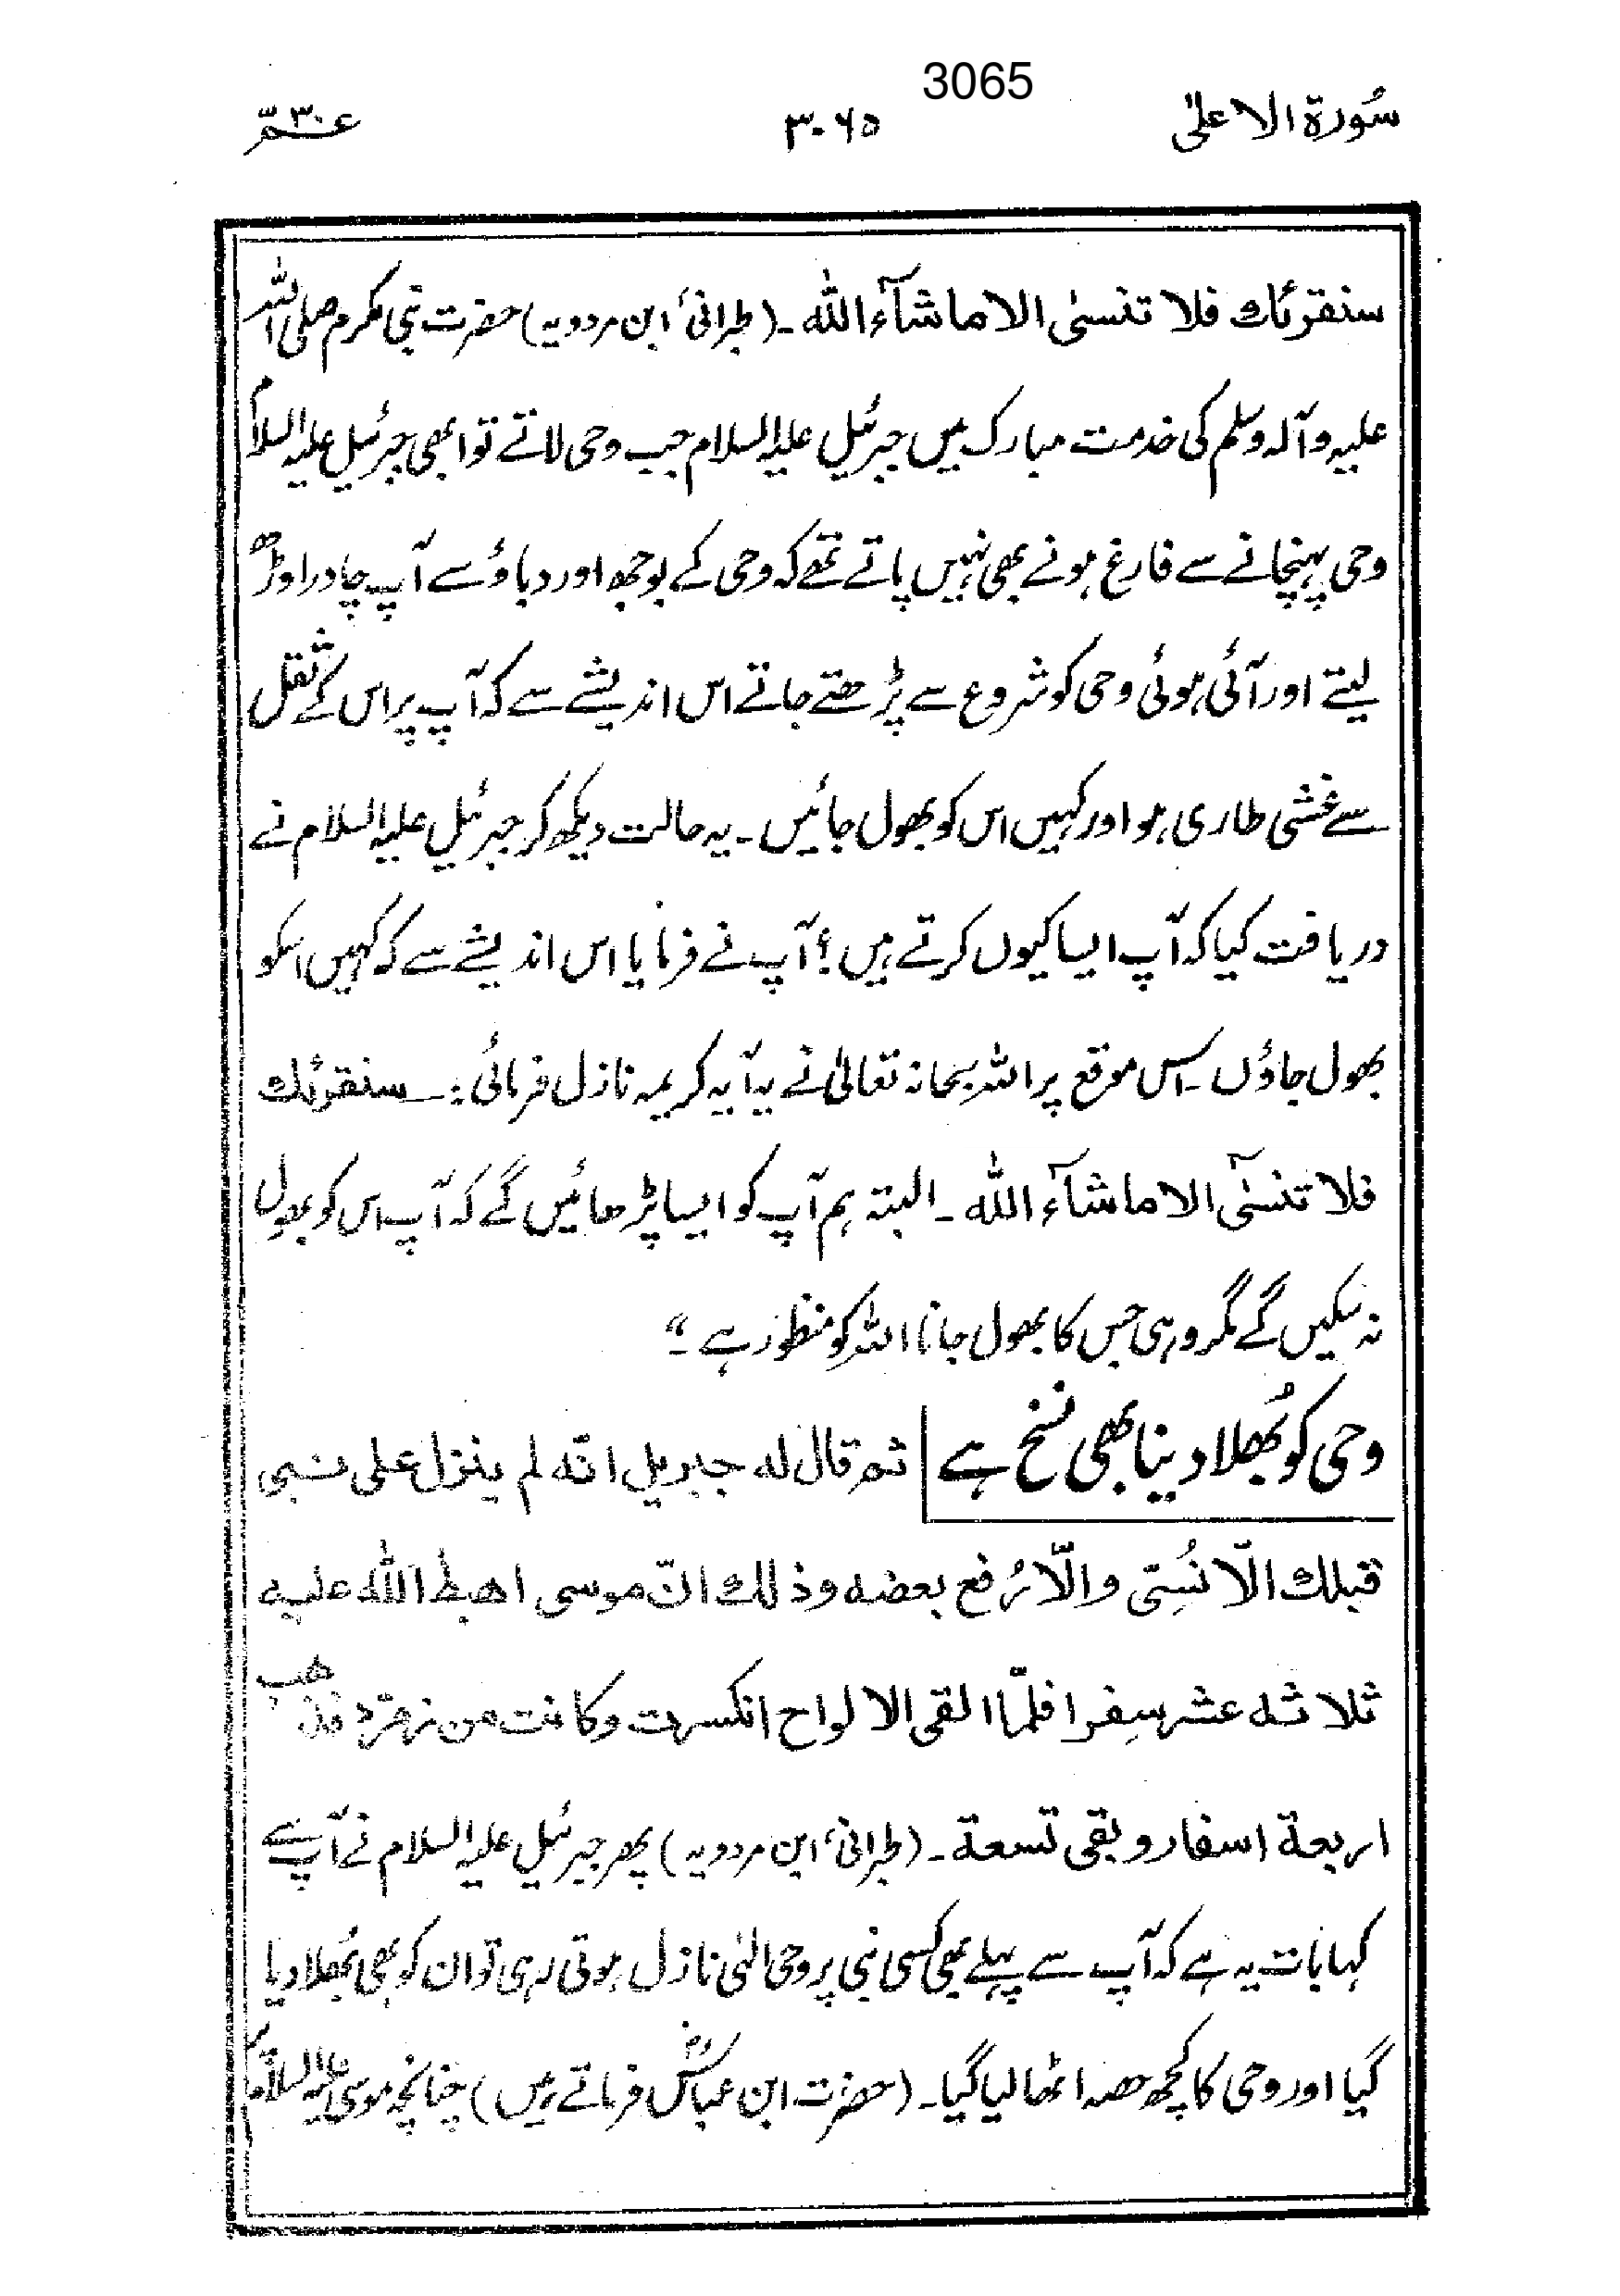 3065
سُورة الاعلىٰ ٣٠٦٥ عمّ ٣٠
سنقرئك فلا تنسىٰ الا ماشآء الله ۔ (طبرانی، ابن مردویہ) حضرت نبی مکرم صلی اللہ
علیہ وآلہ وسلم کی خدمت مبارک میں جبرئیل علیہ السلام جب وحی لاتے تو ابھی جبرئیل علیہ السلام
وحی پہنچانے سے فارغ ہونے بھی نہیں پاتے تھے کہ وحی کے بوجھ اور دباؤ سے آپ چادر اوڑھ
لیتے اور آئی ہوئی وحی کو شروع سے پڑھتے جاتے اس اندیشے سے کہ آپ پر اس کے ثقل
سے غشی طاری ہو اور کہیں اس کو بھول جائیں ۔ یہ حالت دیکھ کر جبرئیل علیہ السلام نے
دریافت کیا کہ آپ ایسا کیوں کرتے ہیں؟ آپ نے فرمایا اس اندیشے سے کہ کہیں اسکو
بھول جاؤں ۔ اس موقع پر اللہ سبحانہ تعالیٰ نے یہ آیہ کریمہ نازل فرمائی :۔ سنقرئك
فلا تنسىٰٓ الا ماشآء الله ۔ البتہ ہم آپ کو ایسا پڑھائیں گے کہ آپ اس کو بھول
نہ سکیں گے مگر وہی جس کا بھول جانا اللہ کو منظور ہے ۔“
وحی کو بُھلا دینا بھی نسخ ہے ثم قال له جبريل انّه لم ينزل على نبى
قبلك الّا نُسِّى والّا رُفع بعضه وذلك انّ موسى اهبط الله عليه
ثلاثه عشر سِفرا فلمّا القى الالواح انكسرت وكانت من زمرّد فذهب
اربعة اسفار وبقى تسعة ۔ (طبرانی، ابن مردویہ) پھر جبرئیل علیہ السلام نے آپ سے
کہا بات یہ ہے کہ آپ سے پہلے بھی کسی نبی پر وحی الٰہی نازل ہوتی رہی تو ان کو بھی بُھلا دیا
گیا اور وحی کا کچھ حصہ اٹھا لیا گیا ۔ (حضرت ابن عباسؓ فرماتے ہیں) چنانچہ موسیٰ علیہ السلام